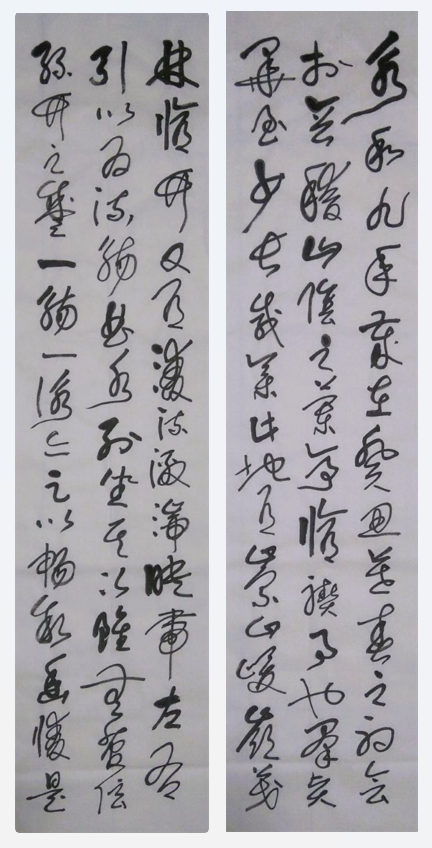 永和九年歲在癸丑暮春之初會
於會稽山陰之蘭亭脩禊事也群賢
畢至少長咸集此地有崇山峻嶺茂
林脩竹又有清流激湍映帶左右
引以為流觴曲水列坐其次雖無管弦
絲竹之盛一觴一詠亦足以暢敘幽情是